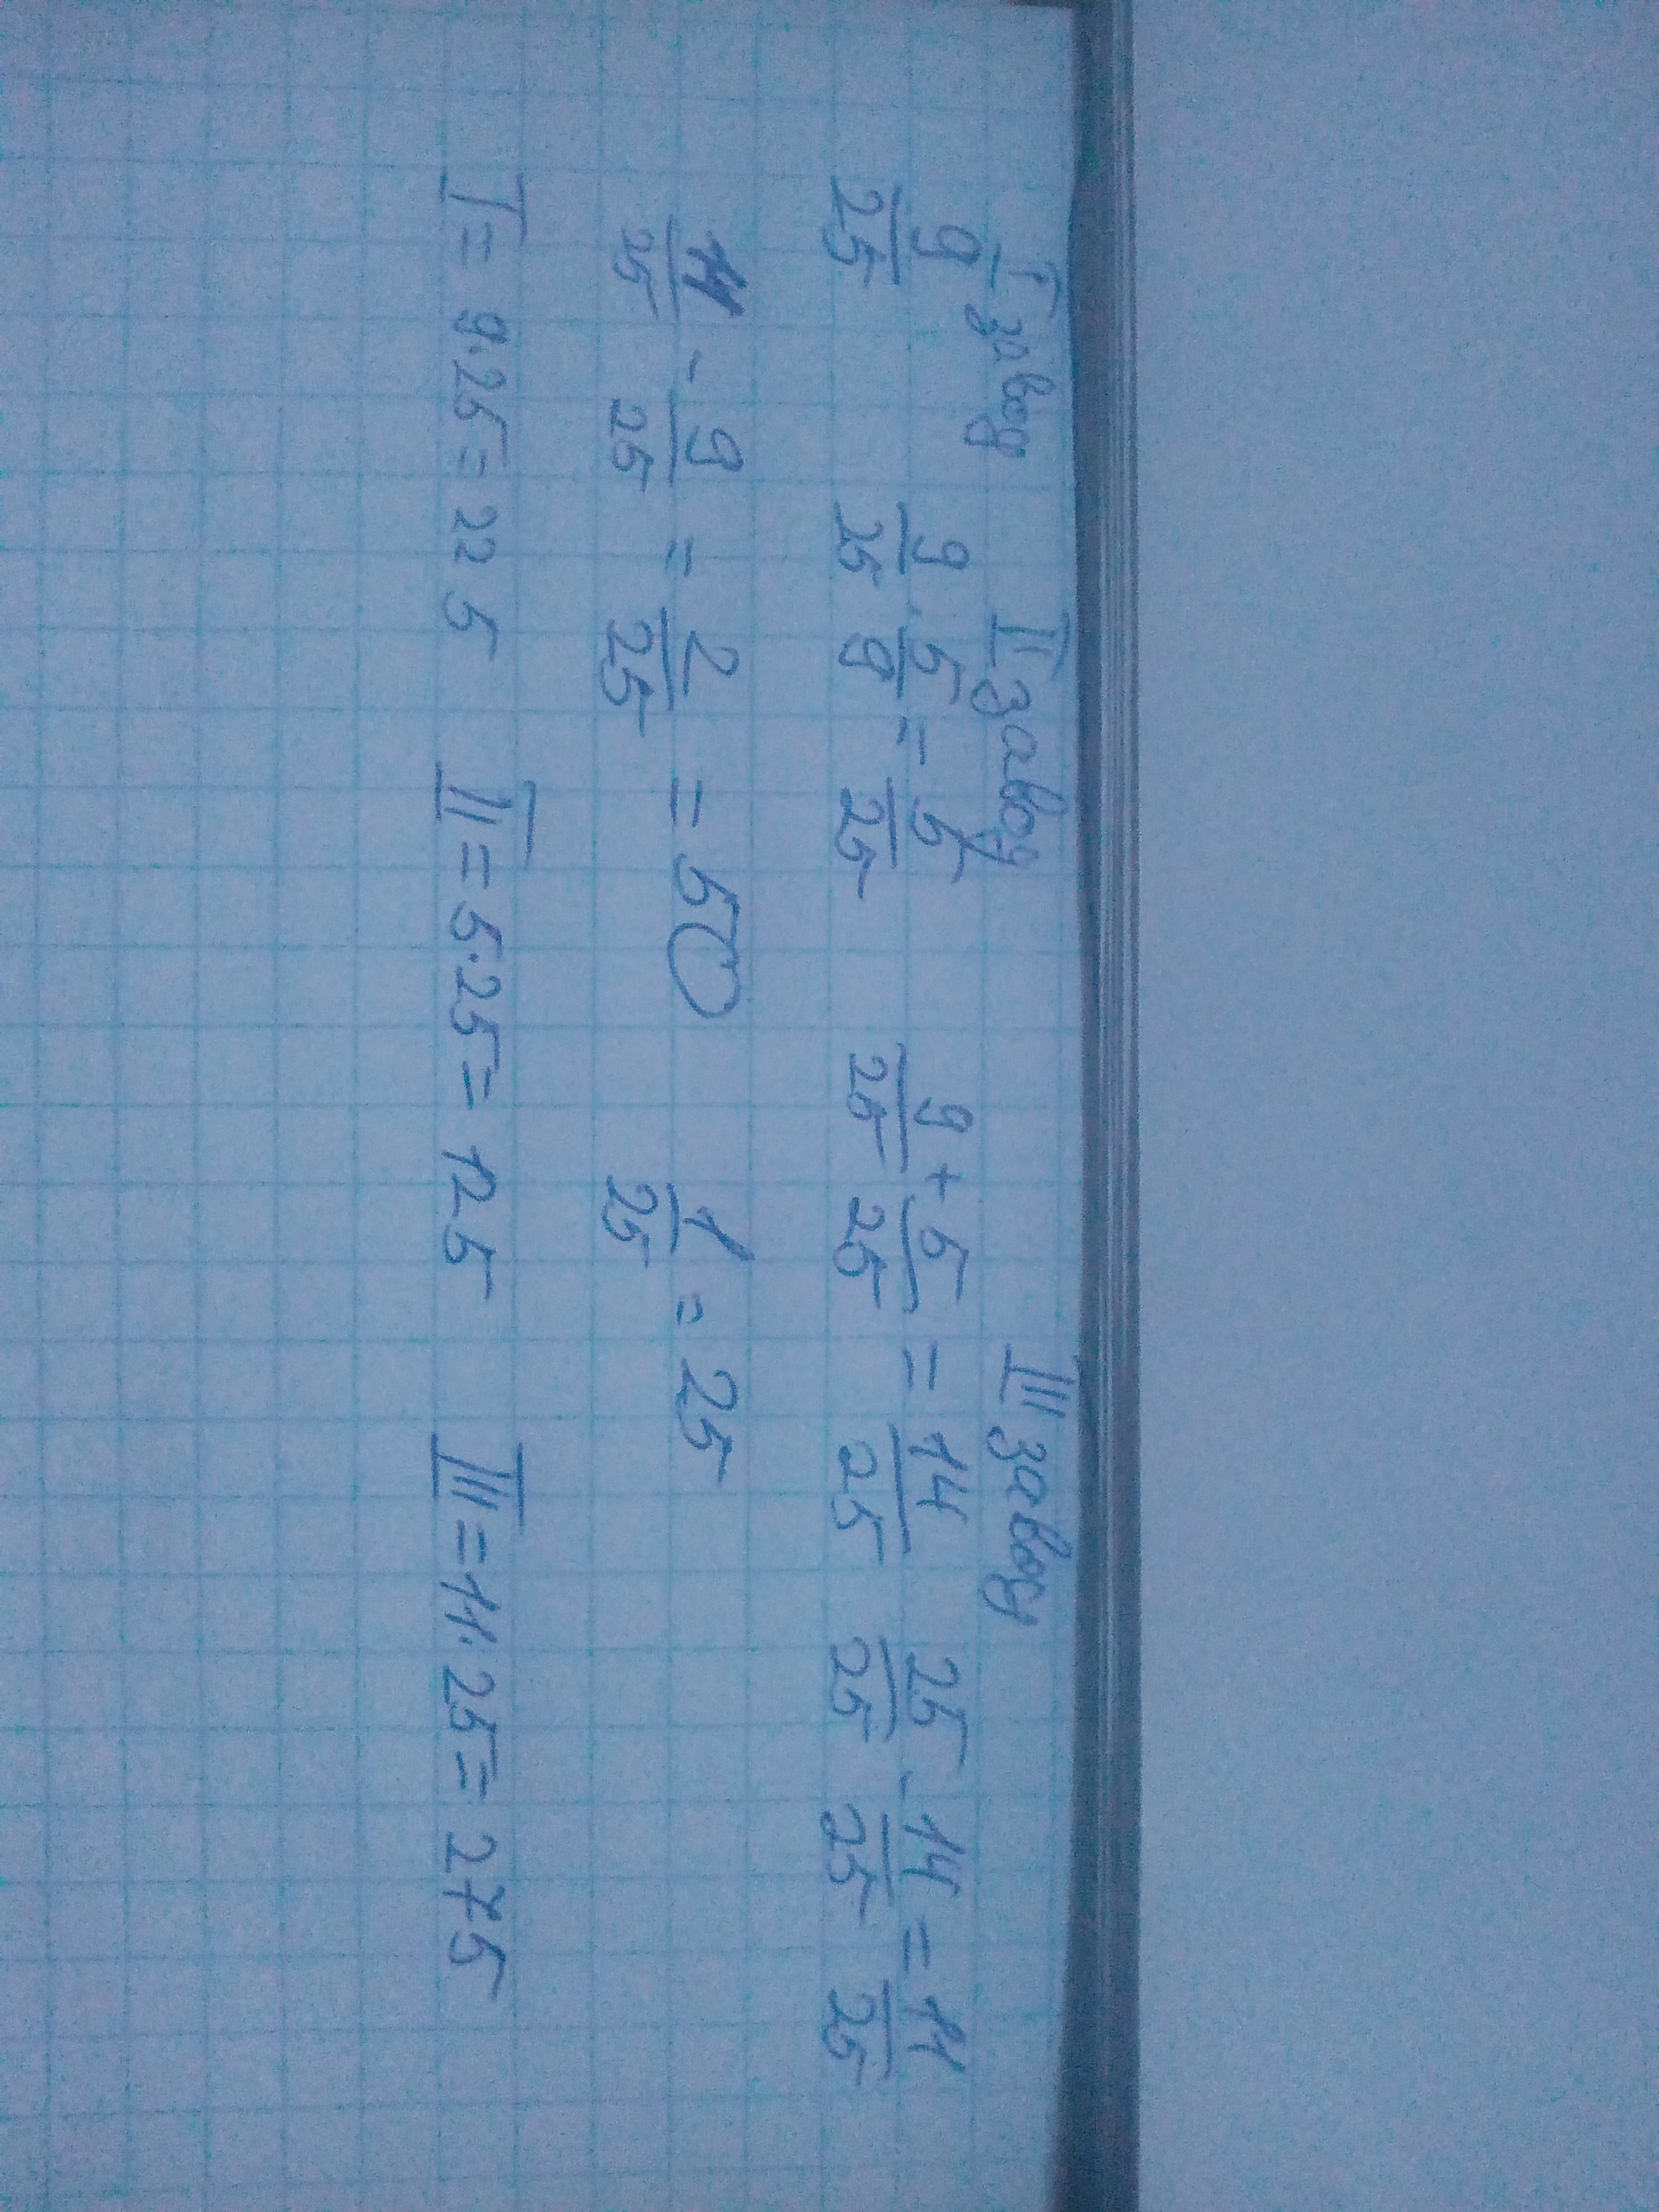 I завод II завод III завод
9/25 9/25 · 5/9 = 5/25 9/25 + 5/25 = 14/25 25/25 - 14/25 = 11/25
11/25 - 9/25 = 2/25 = 50 1/25 = 25
I = 9·25 = 225 II = 5·25 = 125 III = 11·25 = 275